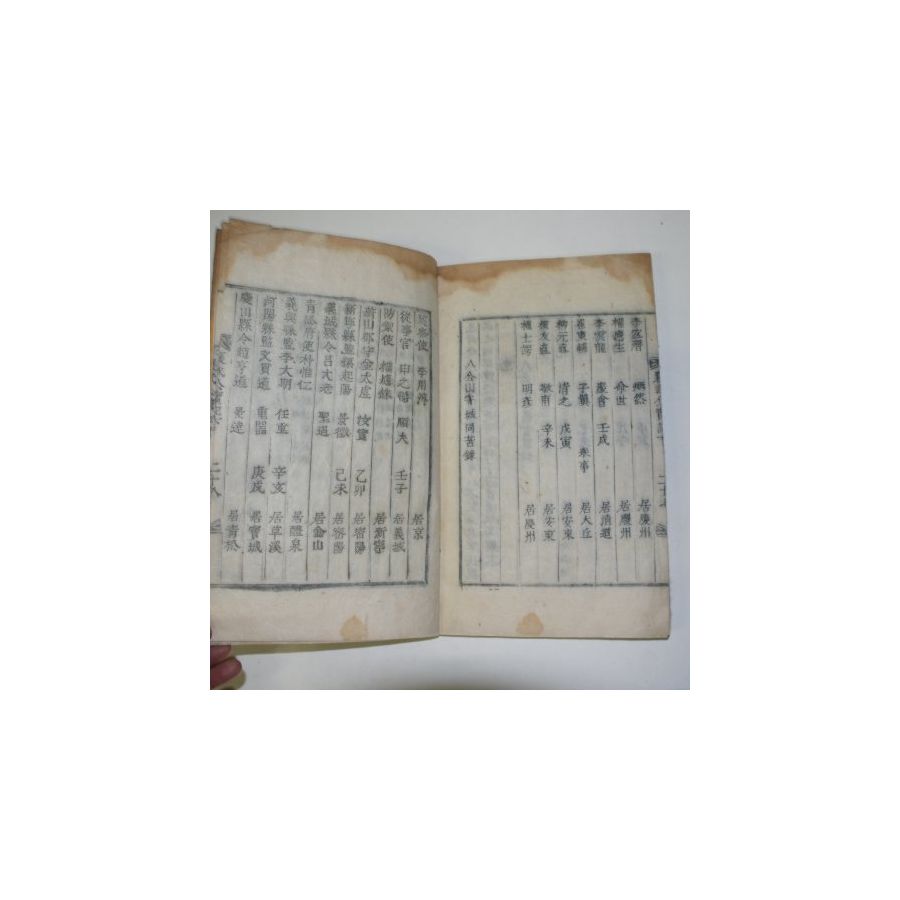 李 然 居慶州
權應生 命世 居慶州
李雲龍 慶會 壬戌 居淸道
崔東輔 子翼 奉事 居大丘
柳元直 清之 戊寅 居安東
權友直 敬甫 辛未 居安東
權士諤 明彦 居慶州
八公山守城同苦錄
巡察使 李用淳 居京
從事官 申之悌 順夫 壬子 居義城
防禦使 權應銖 居新寧
蔚山郡守金太虛 乙卯 居密陽
新寧縣監孫起陽 景徵 己未 居密陽
義城縣令呂大老 聖遇 居金山
青松府使朴惟仁 居醴泉
義興縣監李大期 任重 辛亥 居草溪
河陽縣監文貫道 重器 庚戌 居寶城
慶山縣令趙亨道 景達 居青松
二十八